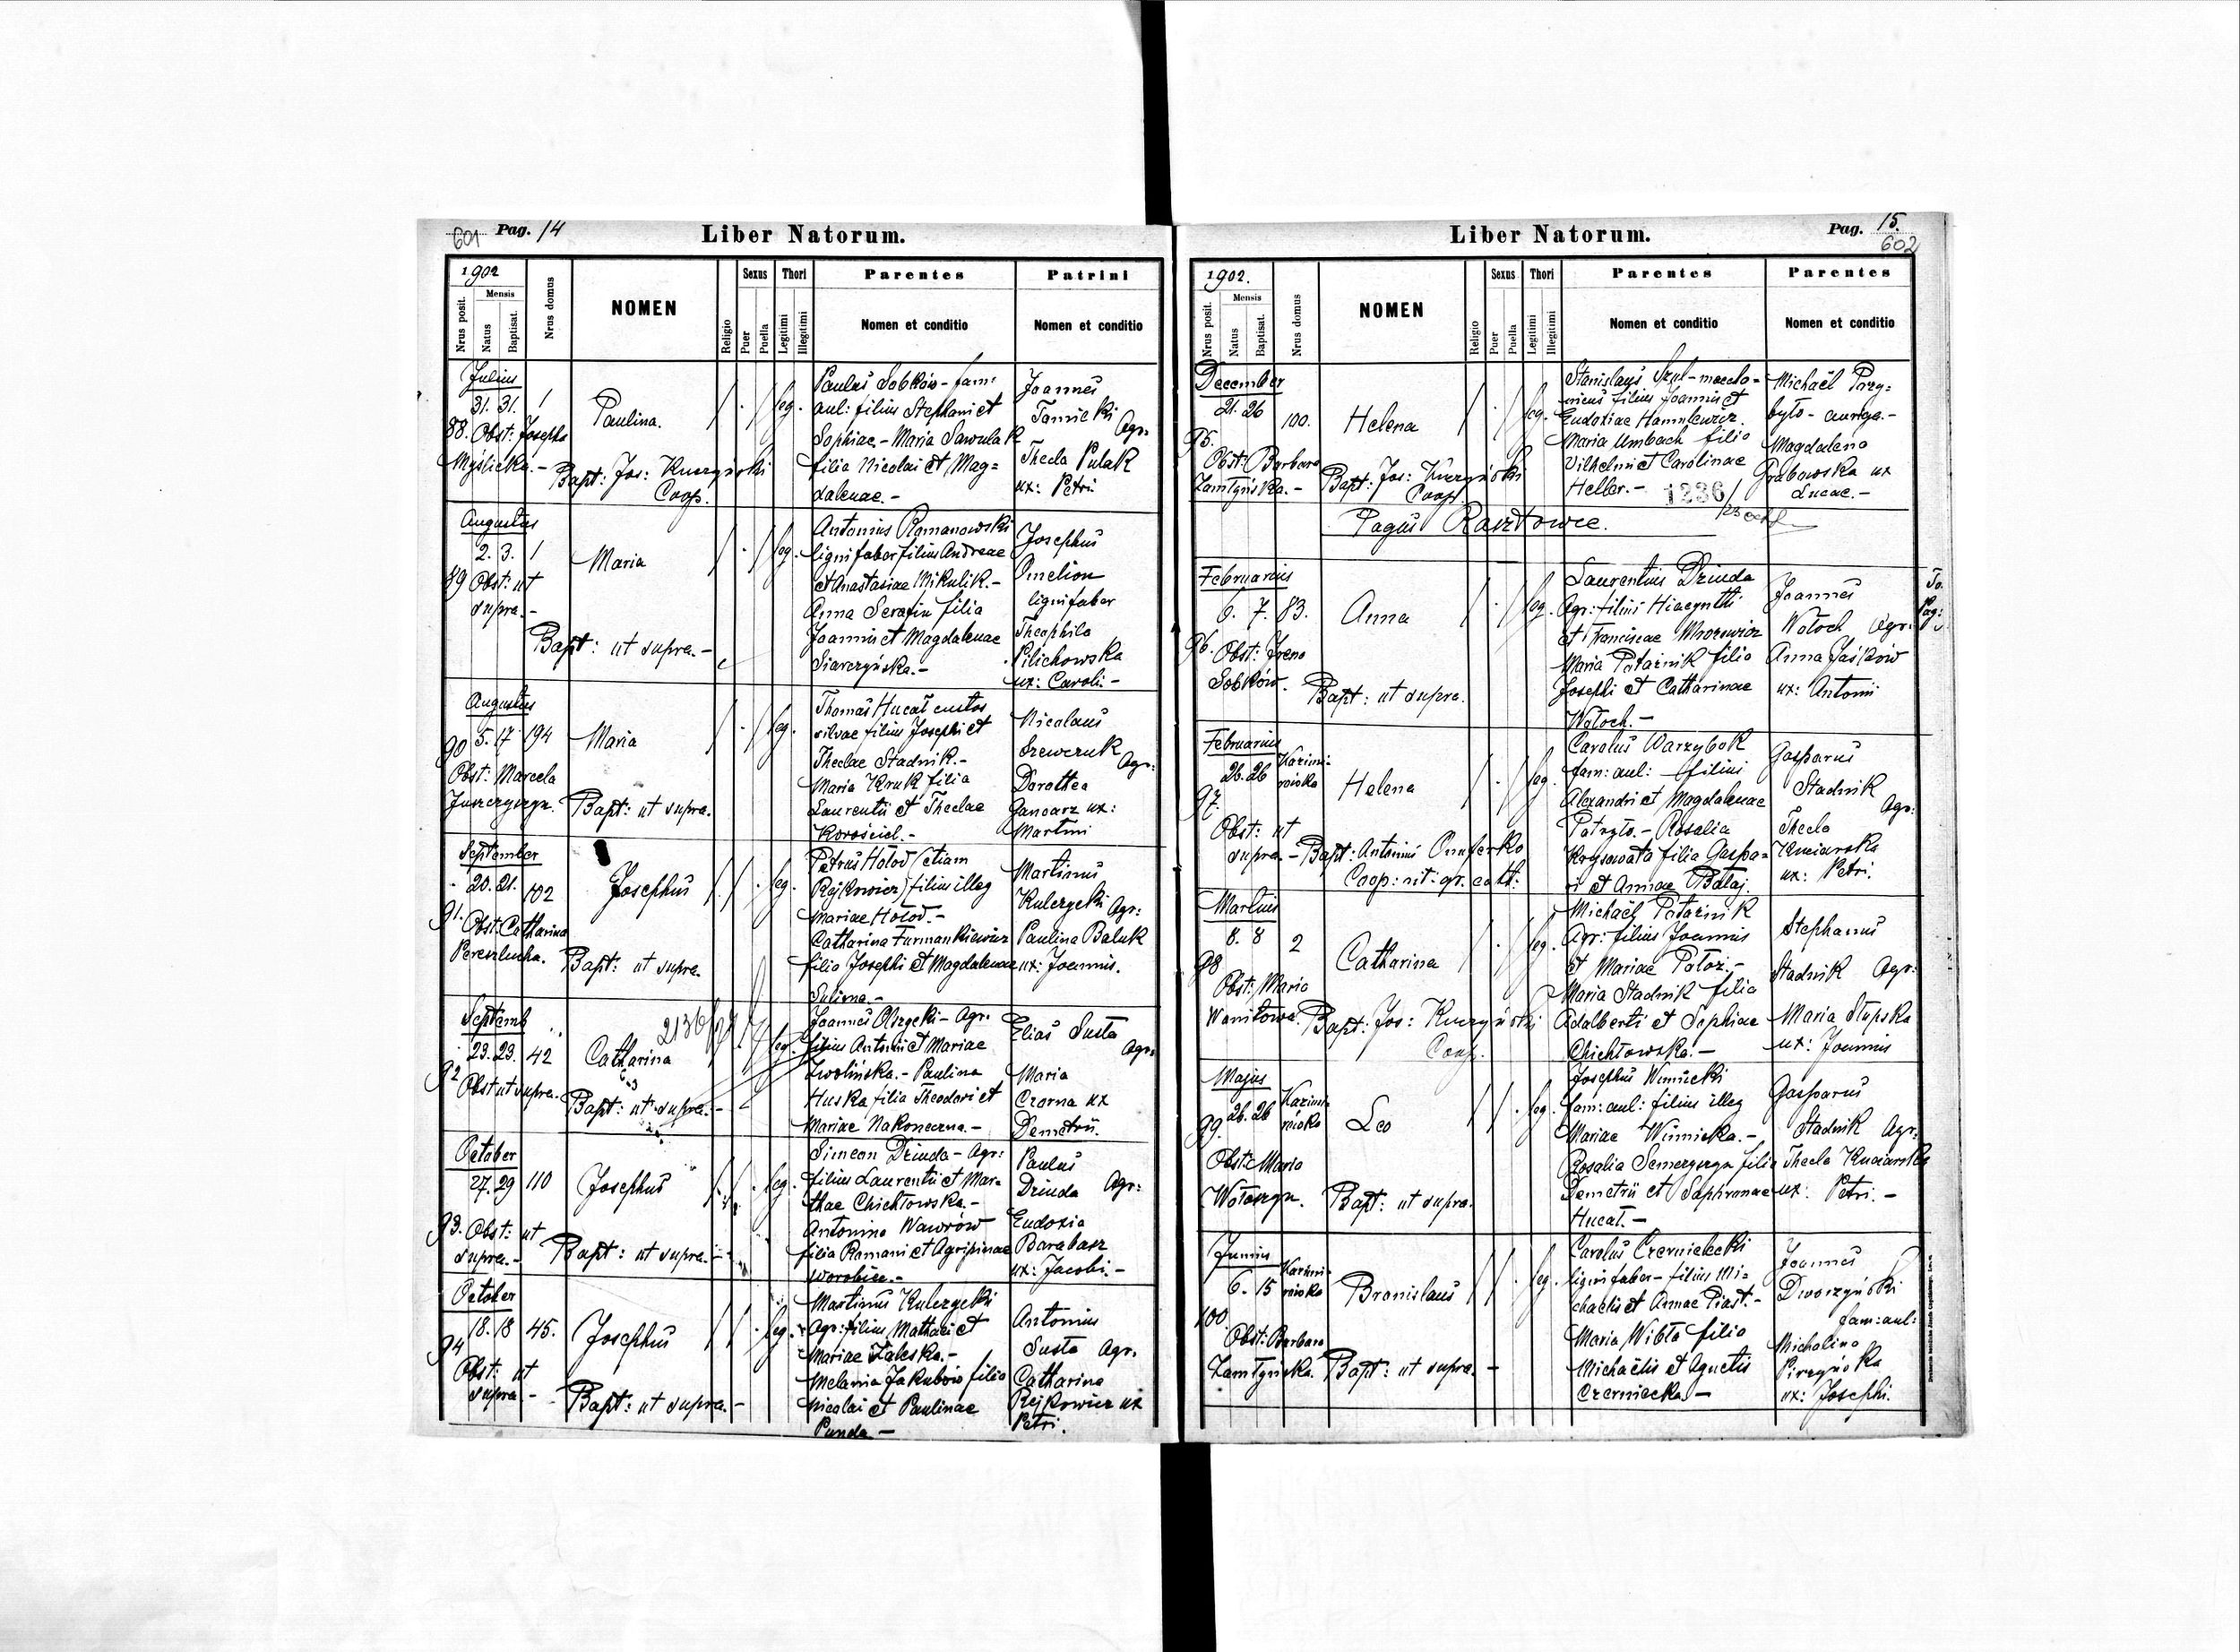 601 Pag. 14 Liber Natorum.
1902
Nrus posit.
Mensis
Natus
Baptisat.
Nrus domus
NOMEN
Religio
Sexus
Puer
Puella
Thori
Legitimi
Illegitimi
Parentes
Nomen et conditio
Patrini
Nomen et conditio
Julius
31. 31. 1
88. Obst: Josepha
Myślicka.-
Paulina.
Bapt: Jos: Kuczyński
Coop.
leg.
Paulus Sobków - fam:
aul: filius Stephani et
Sophiae.- Maria Sawulak
filia Nicolai et Mag=
dalenae.-
Joannes
Tanicki Agr:
Thecla Pulak
ux: Petri
Augustus
2. 3. 1
89 Obst: ut
supra.-
Maria
Bapt: ut supra.-
leg.
Antonius Romanowski
lignifaber filius Andreae
et Anastasiae Mikulik.-
Anna Serafin filia
Joannis et Magdalenae
Siarczyńska.-
Josephus
Omelion
lignifaber
Theophila
Pilichowska
ux: Caroli.-
Augustus
5. 17 194
90
Obst: Marcela
Juszczyszyn.
Maria
Bapt: ut supra.
leg.
Thomas Hucał custos
silvae filius Josephi et
Theclae Stadnik.-
Maria Kruk filia
Laurentii et Theclae
Korościel.-
Nicolaus
Szewczuk Agr:
Dorothea
Ganczarz ux:
Martini
September
20. 21. 102
91.
Obst: Catharina
Pereszlucha.
Josephus
Bapt: ut supra.
leg.
Petrus Hołod (etiam
Rejkowicz) filius illeg
Mariae Hołod.-
Catharina Furmankiewicz
filia Josephi et Magdalenae
Sulima.-
Martinus
Kulczycki Agr:
Paulina Baluk
ux: Joannis.
Septemb
23. 23. 42
92
Obst ut supra.
Catharina
Bapt: ut supra.-
leg.
Joannes Olszycki - Agr.
filius Antonii et Mariae
Zwolińska.- Paulina
Huska filia Theodori et
Mariae Nakoneczna.-
Elias Susta
Agr:
Maria
Czorna ux
Demetrii.
October
27. 29 110
93. Obst: ut
supra.-
Josephus
Bapt: ut supra.-
leg.
Simeon Dziuda - Agr:
filius Laurentii et Mar=
thae Chichłowska.-
Antonina Wawrów
filia Romani et Agripinae
Worobiec.-
Paulus
Dziuda Agr:
Eudoxia
Barabasz
ux: Jacobi.-
October
18. 18 45.
94
Obst: ut
supra.-
Josephus
Bapt: ut supra.-
leg.
Martinus Kulczycki
Agr: filius Mathaei et
Mariae Zaleska.-
Melania Jakubów filia
Nicolai et Paulinae
Punda.-
Antonius
Susta Agr.
Catharina
Rejkowicz ux
Petri.
Liber Natorum. Pag. 15.
602
1902.
Nrus posit.
Mensis
Natus
Baptisat.
Nrus domus
NOMEN
Religio
Sexus
Puer
Puella
Thori
Legitimi
Illegitimi
Parentes
Nomen et conditio
Parentes
Nomen et conditio
December
21. 26 100.
95.
Obst: Barbara
Zamłyńska.-
Helena
Bapt: Jos: Kuczyński
Coop.
leg.
Stanislaus Szul - mecha=
nicus filius Joannis et
Eudoxiae Hamulewicz.
Maria Umbach filia
Vilhelmi et Carolinae
Heller.-
1236/
Michaël Przy=
było - auriga.-
Magdalena
Grabowska ux
Lucae.-
Pagus Rasztowce.
Februarius
6. 7. 83.
96. Obst: Irena
Sobków.
Anna
Bapt: ut supra.
leg.
Laurentius Dziuda
Agr: filius Hiacynthi
et Franciscae Mrozowicz
Maria Potaźnik filia
Josephi et Catharinae
Wołoch.-
Joannes
Wołoch Agr:
Anna Jaśków
ux: Antonii
Februarius
26. 26 Kazimi=
rówka
97.
Obst: ut
supra.-
Helena
Bapt: Antonius Onuferko
Coop: rit: gr. catt:
leg.
Carolus Warzybok
fam: aul: filius
Alexandri et Magdalenae
Potrzło.- Rosalia
Krysowata filia Gaspa=
ri et Annae Bałaj.
Gasparus
Stadnik
Agr:
Thecla
Kuciarska
ux: Petri.
Martius
8. 8 2
98
Obst: Maria
Wanitowa.
Catharina
Bapt: Jos: Kuczyński
Coop.
leg.
Michaël Potaźnik
Agr: filius Joannis
et Mariae Potoz.-
Maria Stadnik filia
Adalberti et Sophiae
Chichłowska.-
Stephanus
Stadnik Agr:
Maria Słupska
ux: Joannis
Majus
26. 26 Kazimi=
rówka
99.
Obst: Maria
Wołoszyn.
Leo
Bapt: ut supra.
leg.
Josephus Winnicki
fam: aul: filius illeg
Mariae Winnicka.-
Rosalia Semerszyn filia
Demetrii et Sophroniae
Hucał.-
Gasparus
Stadnik Agr:
Thecla Kuciarska
ux: Petri.-
Junius
6. 15 Kazimi=
rówka
100.
Obst: Barbara
Zamłyńska.
Bronislaus
Bapt: ut supra.-
leg.
Carolus Czernielecki
lignifaber - filius Mi=
chaelis et Annae Piast.-
Maria Wibła filia
Michaëlis et Agnetis
Czerniecka.-
Joannes
Dworzyński
fam: aul:
Michalina
Pirzyńska
ux: Josephi.